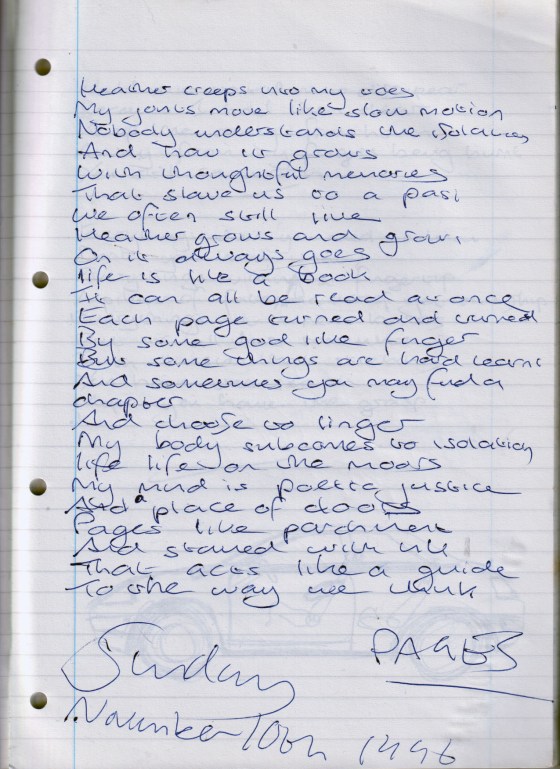 Heather creeps into my toes
My joints move like slow motion
Nobody understands the isolation
And how it grows
With thoughtful memories
That slave us to a past
We often still live
Heather grows and grows
On it always goes
Life is like a book
It can all be read at once
Each page turned and turned
By some god like finger
But some things are hard learnt
And sometimes you may find a
chapter
And choose to linger
My body subcomes to isolation
life life on the moors
My mind is poetic justice
And a place of doors
Pages like parchment
And stained with ink
That acts like a guide
To the way we think
PAGES
Sunday
November 10th 1996